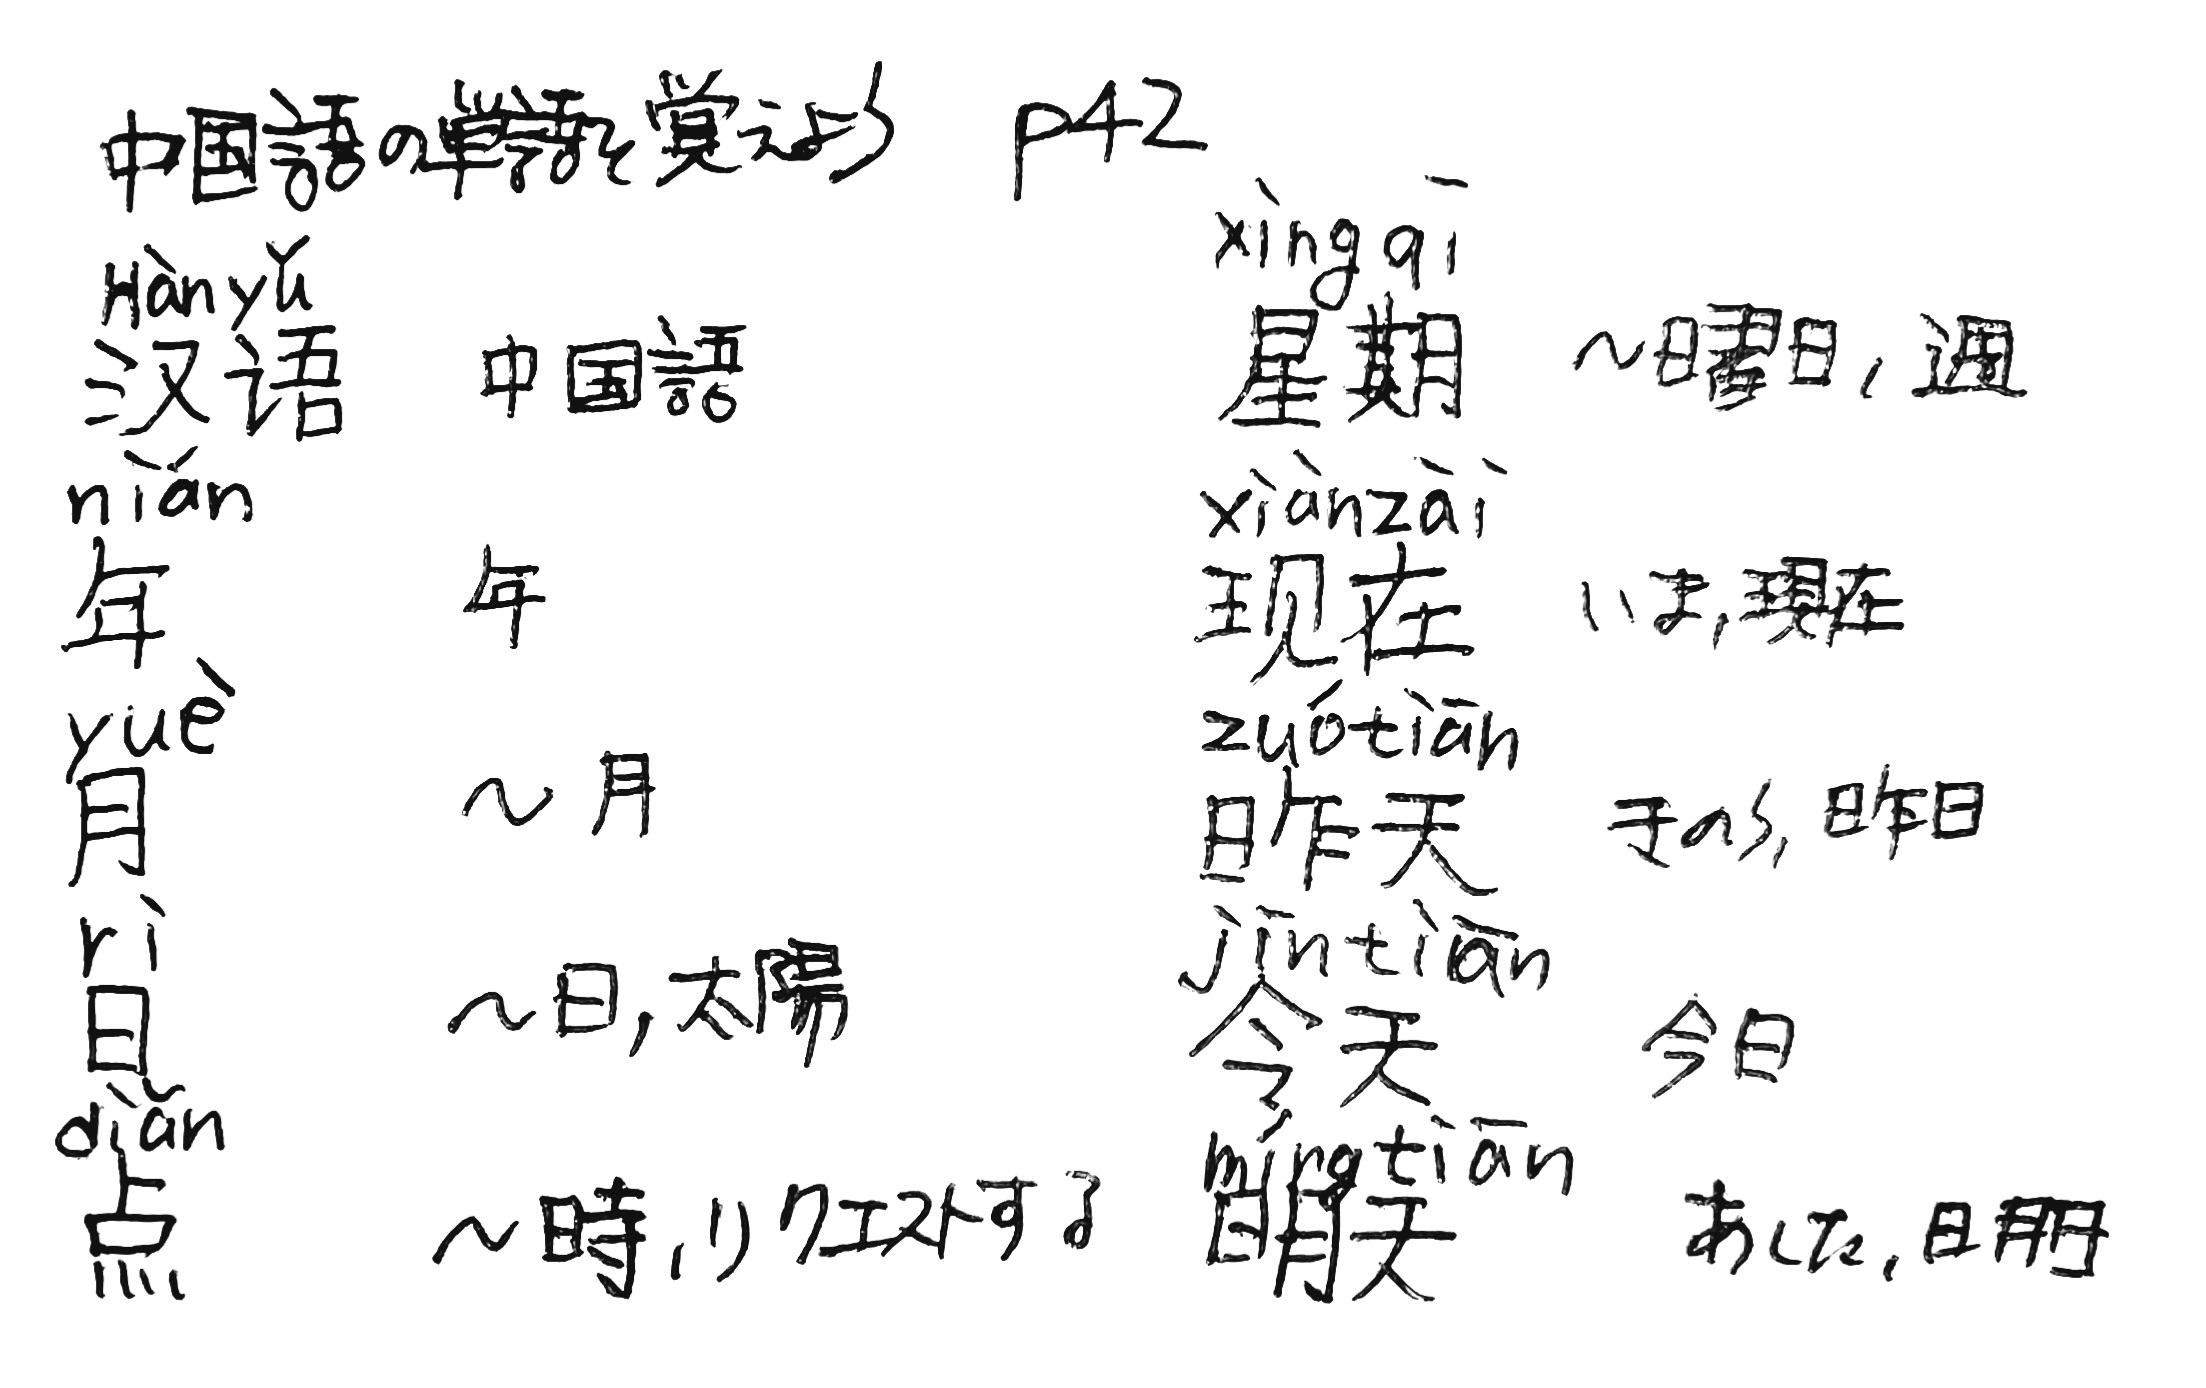 中国語の単語を覚えよう p42
Hànyǔ
汉语 中国語
nián
年 年
yuè
月 ～月
rì
日 ～日,太陽
diǎn
点 ～時,リクエストする
xìngqī
星期 ～曜日,週
xiànzài
现在 いま,現在
zuótiān
昨天 きのう,昨日
jīntiān
今天 今日
míngtiān
明天 あした,明日